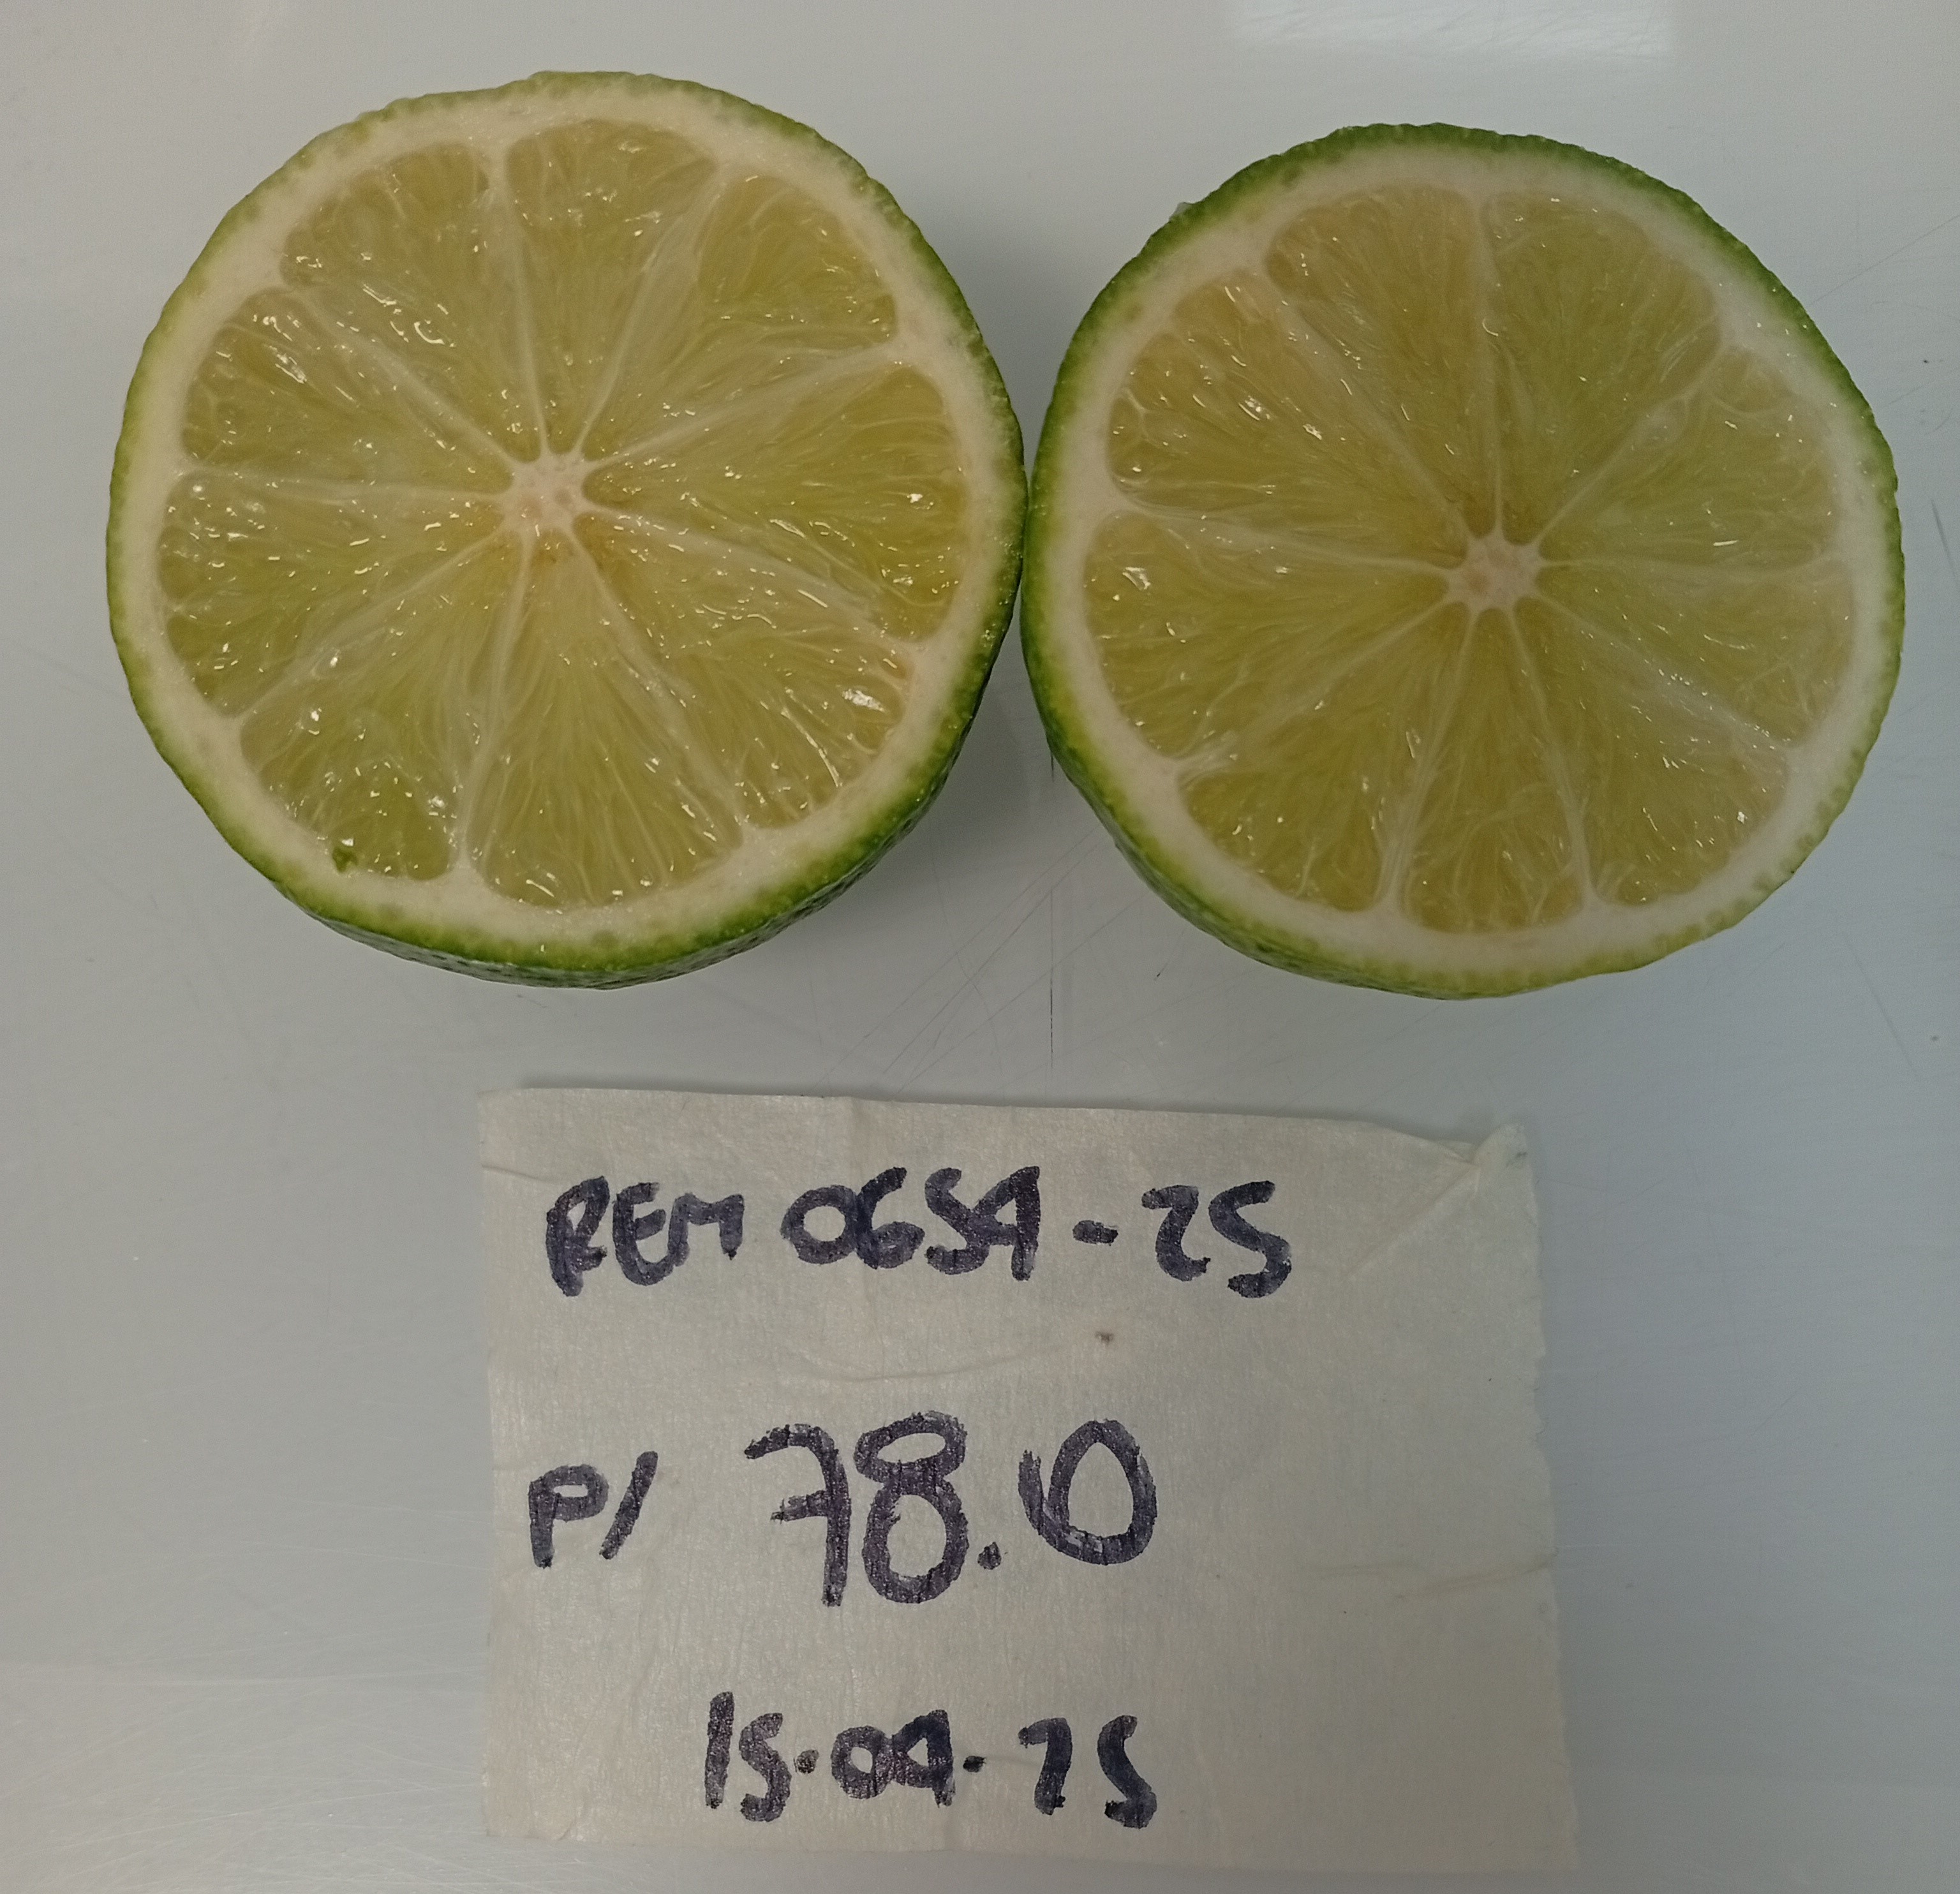 REM 0654-25
P/ 78.0
15.04.25